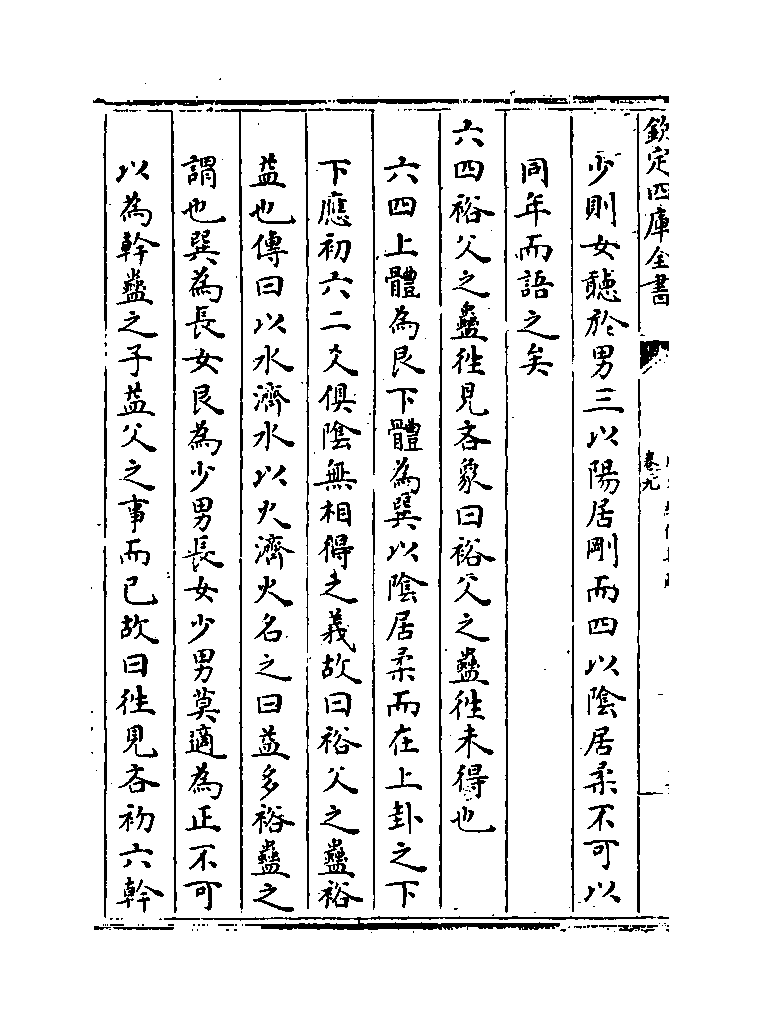 欽定四庫全書
卷九
少則女聽於男三以陽居剛而四以陰居柔不可以
同年而語之矣
六四裕父之蠱徃見吝象曰裕父之蠱徃未得也
六四上體為艮下體為巽以陰居柔而在上卦之下
下應初六二爻俱陰無相得之義故曰裕父之蠱裕
益也傳曰以水濟水以火濟火名之曰益多裕蠱之
謂也巽為長女艮為少男長女少男莫適為正不可
以為幹蠱之子益父之事而已故曰徃見吝初六幹